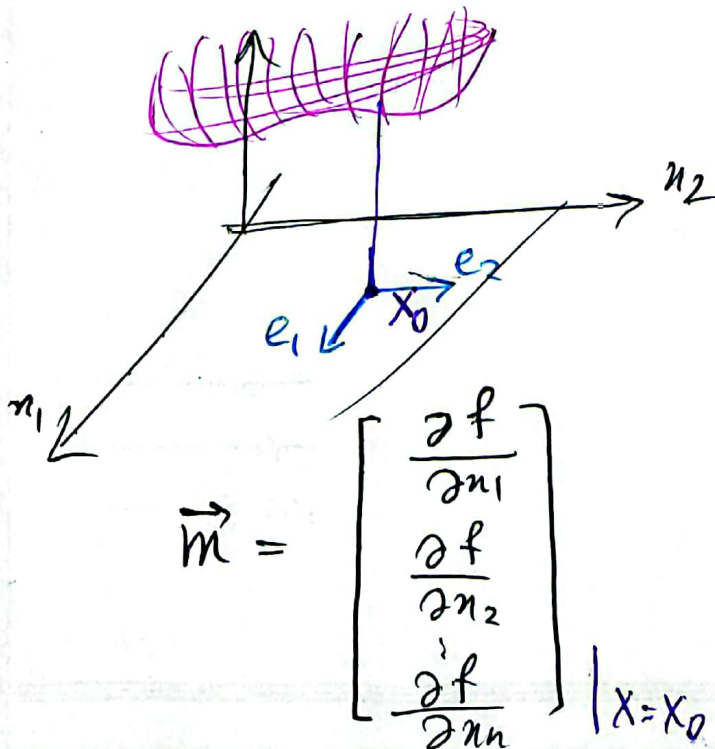 x2
e2
x0
e1
x1
m⃗ = [ ∂f/∂x1
∂f/∂x2
⋮
∂f/∂xn ] | x=x0